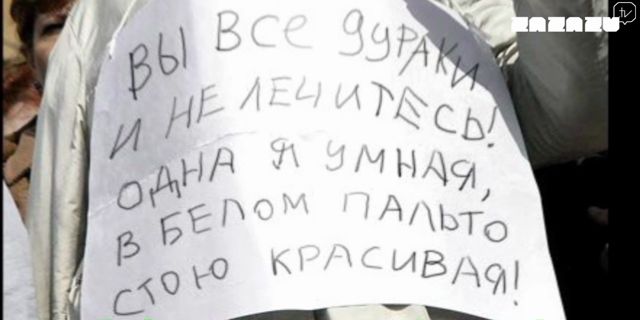 ZAZAZU
tv
Вы все дураки
и не лечитесь!
Одна я умная,
в белом пальто
стою красивая!